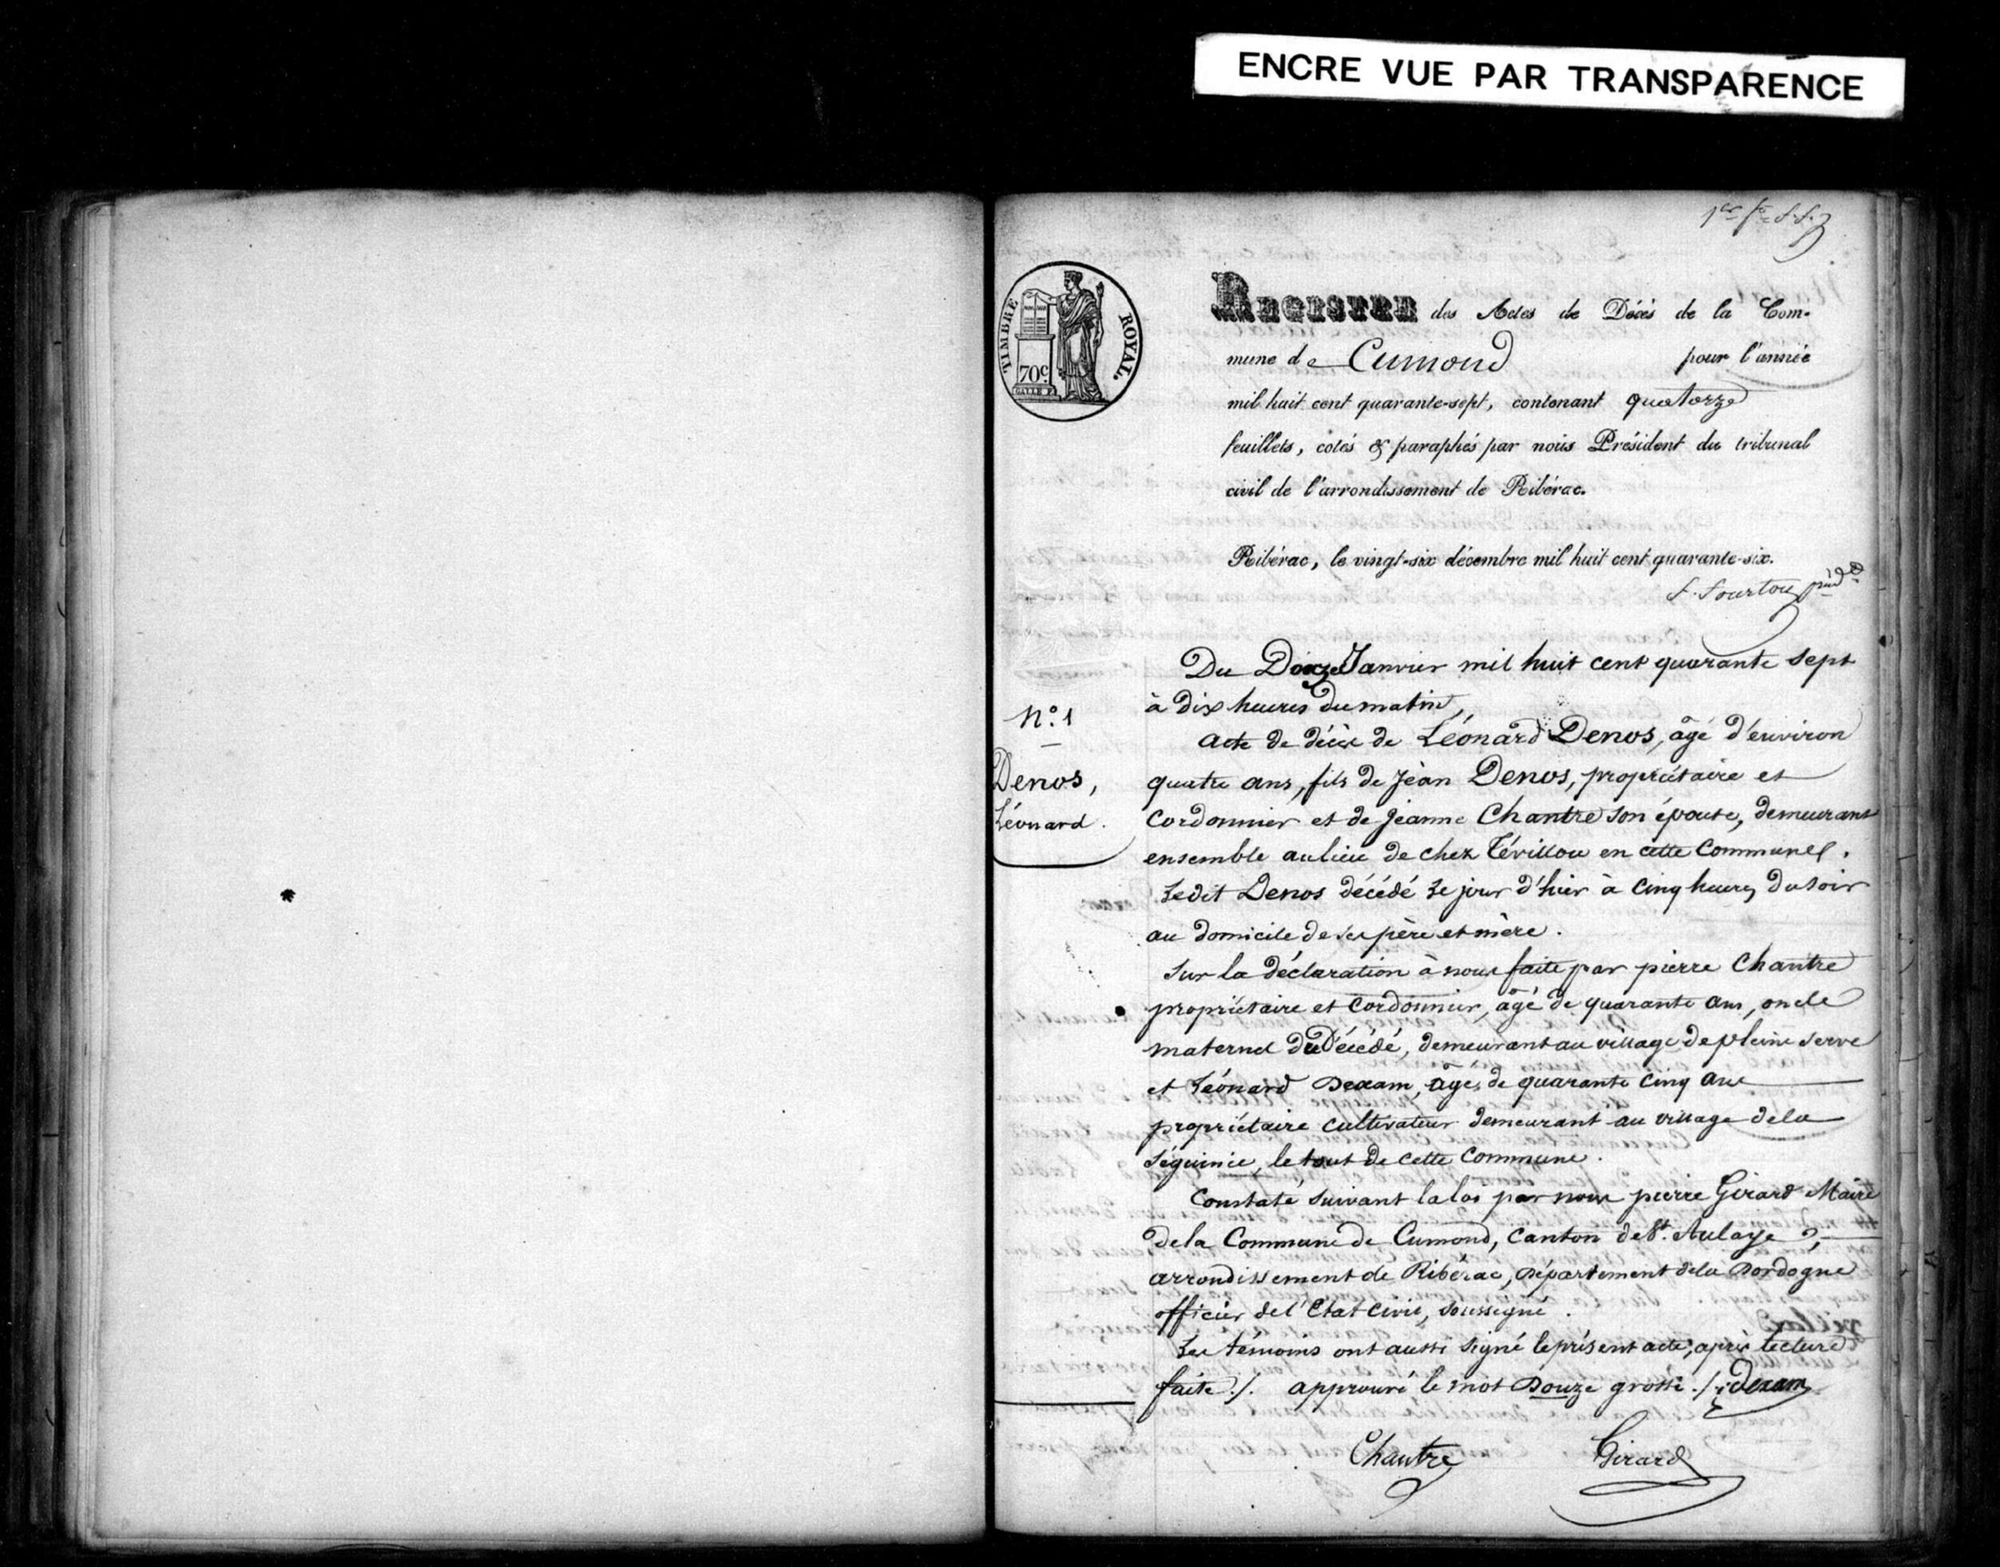 ENCRE VUE PAR TRANSPARENCE
1er fo
TIMBRE ROYAL.
70c.
REGISTRE des Actes de Décès de la Com-
mune de Cumond pour l'année
mil huit cent quarante-sept, contenant quatorze
feuillets, cotés & paraphés par nous Président du tribunal
civil de l'arrondissement de Ribérac.
Ribérac, le vingt-six décembre mil huit cent quarante-six.
Du Douze Janvier mil huit cent quarante sept
à dix heures du matin,
N.o 1
Denos,
Léonard.
acte de décès de Léonard Denos, âgé d'environ
quatre ans, fils de Jean Denos, propriétaire et
Cordonnier et de Jeanne Chantre son épouse, demeurant
ensemble au lieu de chez Tévillou en cette Commune.
Ledit Denos décédé le jour d'hier à cinq heures du soir
au domicile de ses père et mère.
Sur la déclaration à nous faite par pierre Chantre
propriétaire et Cordonnier, âgé de quarante ans, oncle
maternel du Décédé, demeurant au village de pleine serve
et Léonard Dexam, âgé de quarante cinq ans
propriétaire cultivateur demeurant au village de la
Séguinie, le tout de cette Commune.
Constaté suivant la loi par nous pierre Girard Maire
de la Commune de Cumond, Canton de St. Aulaye,
arrondissement de Ribérac, Département de la Dordogne
officier de l'Etat Civil, soussigné.
Les témoins ont aussi signé le présent acte, après lecture
faite ./. approuvé le mot Douze grossi ./. Dexam
Chantre Girard